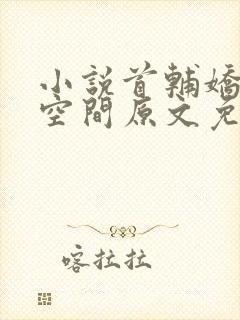 小説首輔嬌
空間原文免
喀拉拉